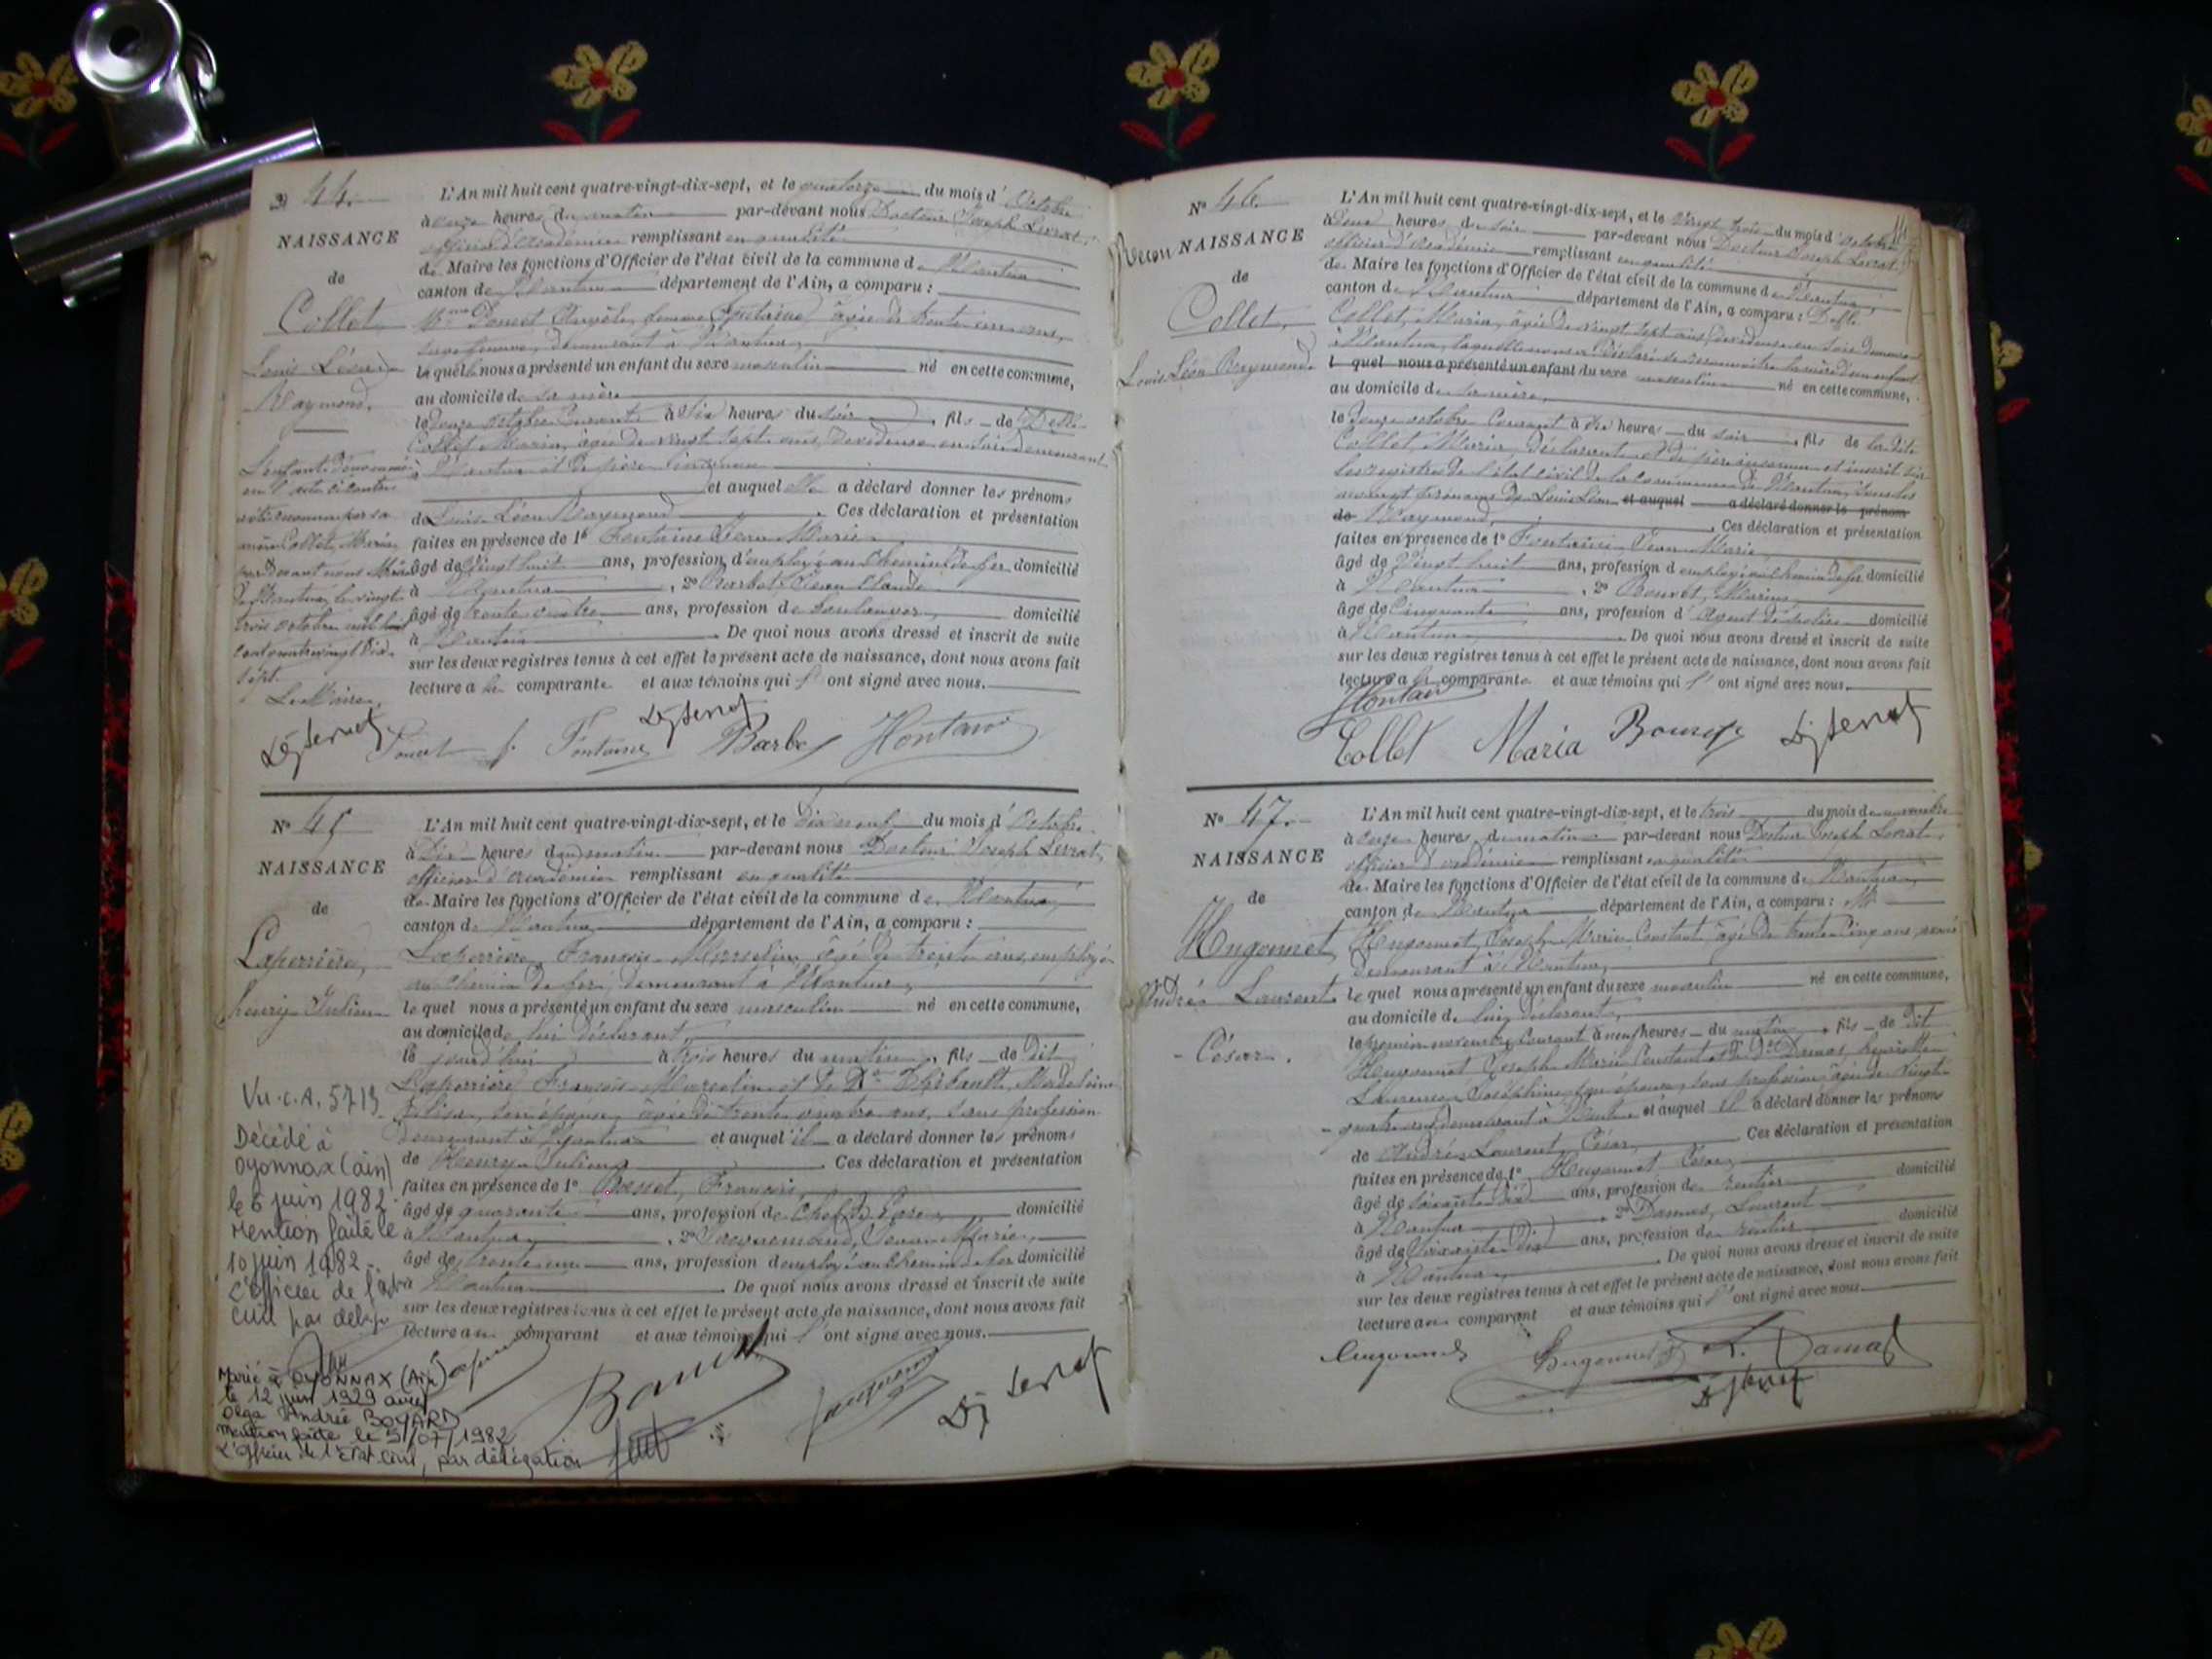 44.
NAISSANCE
de
Collet
Louis Léon
Raymond.
L'An mil huit cent quatre-vingt-dix-sept, et le quatorze du mois d'Octobre
à onze heures du matin par-devant nous Docteur Joseph Livrat,
officier d'Académie remplissant en qualité
de Maire les fonctions d'Officier de l'état civil de la commune de Nantua
canton de Nantua département de l'Ain, a comparu :
Mme Angèle, femme Fontaine, âgée de trente ans,
sage femme, demeurant à Nantua,
lequel nous a présenté un enfant du sexe masculin né en cette commune,
au domicile de sa mère
le douze octobre courant à Six heures du soir, fils de Delle
Collet Maria, âgée de vingt sept ans, dévideuse en soie demeurant
à Nantua et de père inconnu
et auquel elle a déclaré donner les prénoms
de Louis Léon Raymond. Ces déclaration et présentation
faites en présence de 1° Fontaine Jean Marie
âgé de Vingt huit ans, profession d'employé au Chemin de fer domicilié
à Nantua, 2° Barbe Claude
âgé de trente quatre ans, profession de boulanger domicilié
à Nantua. De quoi nous avons dressé et inscrit de suite
sur les deux registres tenus à cet effet le présent acte de naissance, dont nous avons fait
lecture a la comparante et aux témoins qui l'ont signé avec nous.
L'enfant dénommé
en l'acte ci contre
a été reconnu par sa
mère Collet, Maria,
par devant nous Maire
de Nantua, le vingt
trois octobre mil huit
cent quatre vingt dix
sept.
Le Maire,
Fontaine Barbe
N° 45
NAISSANCE
de
Laperrière,
henry Julien
L'An mil huit cent quatre-vingt-dix-sept, et le Dix neuf du mois d'Octobre
à Dix heures du matin par-devant nous Docteur Joseph Livrat,
officier d'académie remplissant en qualité
de Maire les fonctions d'Officier de l'état civil de la commune de Nantua,
canton de Nantua département de l'Ain, a comparu :
Laperrière François Marcelin, âgé de trente ans, employé
au chemin de fer, demeurant à Nantua,
lequel nous a présenté un enfant du sexe masculin né en cette commune,
au domicile de lui déclarant,
le jourd'hui à trois heures du matin, fils de dit
Laperrière François Marcelin et de De Thibault, Madeleine
Elisa, son épouse, âgée de trente quatre ans, sans profession
demeurant à Nantua et auquel il a déclaré donner les prénoms
de Henry Julien. Ces déclaration et présentation
faites en présence de 1° François
âgé de quarante ans, profession de Chef de Gare domicilié
à Nantua, 2° Jean Marie,
âgé de trente ans, profession d'employé au chemin de fer domicilié
à Nantua. De quoi nous avons dressé et inscrit de suite
sur les deux registres tenus à cet effet le présent acte de naissance, dont nous avons fait
lecture au comparant et aux témoins qui l'ont signé avec nous.
Vu.c.A. 5713
Décédé à
Oyonnax (ain)
le 6 juin 1982
Mention faite le
10 juin 1982
L'officier de l'état
civil par délég
Marié à OYONNAX (Ain)
le 12 juin 1929 avec
Olga Andrée BOYARD
Mention faite le 5/07/1982
L'officier de l'Etat Civil, par délégation
N° 46
Recon NAISSANCE
de
Collet,
Louis Léon Raymond
L'An mil huit cent quatre-vingt-dix-sept, et le vingt trois du mois d'octobre
à deux heures du soir par-devant nous Docteur Joseph Livrat
officier d'Académie remplissant en qualité
de Maire les fonctions d'Officier de l'état civil de la commune de Nantua,
canton de Nantua département de l'Ain, a comparu : Delle
Collet, Maria, âgée de vingt sept ans, dévideuse en soie demeurant
à Nantua, laquelle nous a déclaré se reconnaître la mère d'un enfant
l quel nous a présenté un enfant du sexe masculin né en cette commune,
au domicile de sa mère,
le douze octobre courant à Six heures du soir, fils de la dite
Collet, Maria, déclarante et de père inconnu et inscrit sur
les registres de l'état civil de la commune de Nantua, sous les
prénoms de Louis Léon et auquel a déclaré donner le prénom
de Raymond, Ces déclaration et présentation
faites en présence de 1° Fontaine, Jean Marie
âgé de Vingt huit ans, profession d employé au chemin de fer domicilié
à Nantua, 2° Marius
âgé de Cinquante ans, profession d'Agent de police domicilié
à Nantua. De quoi nous avons dressé et inscrit de suite
sur les deux registres tenus à cet effet le présent acte de naissance, dont nous avons fait
lecture a la comparante et aux témoins qui l'ont signé avec nous.
Collet Maria
N° 47.
NAISSANCE
de
Hugonnet
André Laurent
César.
L'An mil huit cent quatre-vingt-dix-sept, et le trois du mois de novembre
à onze heures du matin par-devant nous Docteur Joseph Livrat,
officier d'académie remplissant en qualité
de Maire les fonctions d'Officier de l'état civil de la commune de Nantua,
canton de Nantua département de l'Ain, a comparu : Mr
Hugonnet, Joseph Marie Constant âgé de trente Cinq ans,
demeurant à Nantua,
lequel nous a présenté un enfant du sexe masculin né en cette commune,
au domicile de lui, déclarant,
le premier novembre courant à neuf heures du matin, fils de dit
Hugonnet Joseph Marie Constant et de De Damas, henriette
Laurence Joséphine, son épouse, sans profession, âgée de vingt
quatre ans demeurant à Nantua et auquel il a déclaré donner les prénoms
de André Laurent César. Ces déclaration et présentation
faites en présence de 1° Hugonnet César,
âgé de soixante dix ans, profession de rentier domicilié
à Nantua, 2° Damas, Laurent
âgé de Soixante Dix ans, profession de rentier domicilié
à Nantua. De quoi nous avons dressé et inscrit de suite
sur les deux registres tenus à cet effet le présent acte de naissance, dont nous avons fait
lecture au comparant et aux témoins qui l'ont signé avec nous.
Hugonnet Hugonnet L. Damas